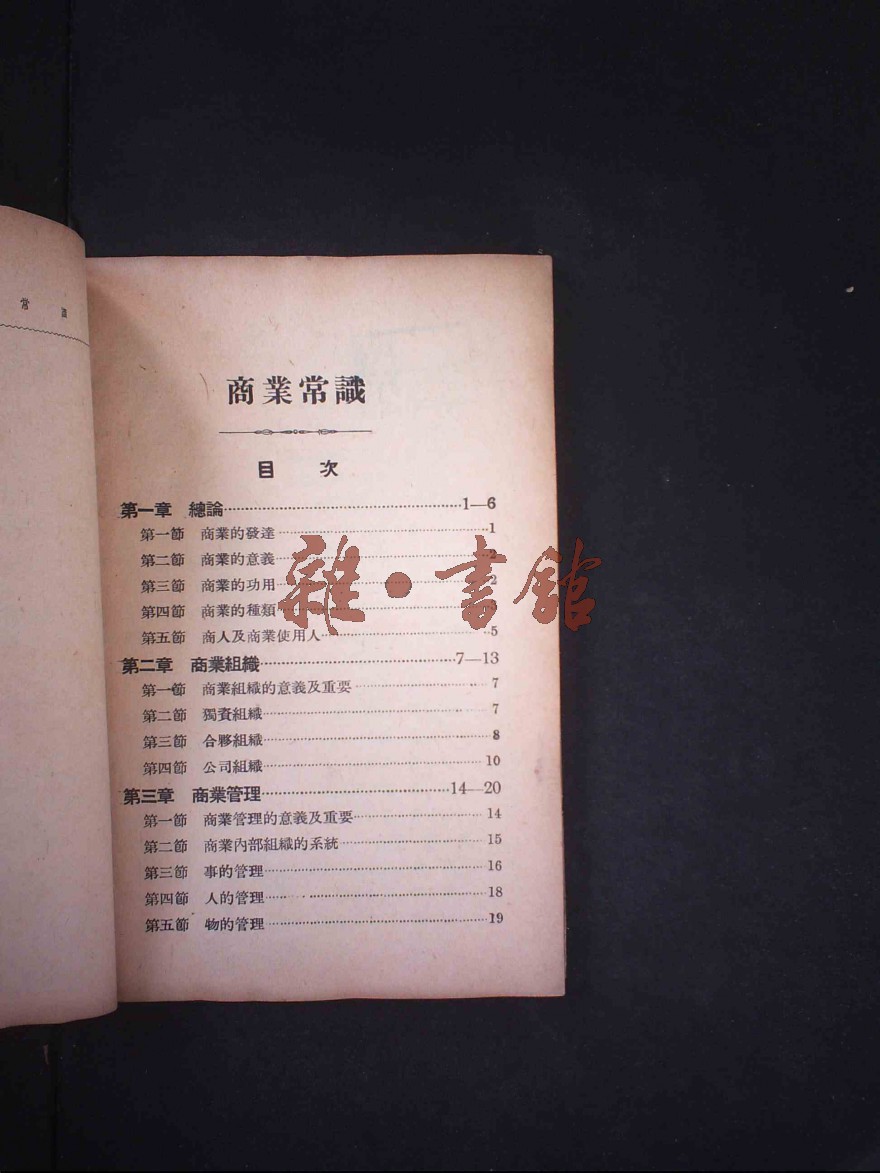 常識
商業常識
目次
第一章 總論……1—6
第一節 商業的發達……1
第二節 商業的意義……2
第三節 商業的功用……2
第四節 商業的種類……3
第五節 商人及商業使用人……5
第二章 商業組織……7—13
第一節 商業組織的意義及重要……7
第二節 獨資組織……7
第三節 合夥組織……8
第四節 公司組織……10
第三章 商業管理……14—20
第一節 商業管理的意義及重要……14
第二節 商業內部組織的系統……15
第三節 事的管理……16
第四節 人的管理……18
第五節 物的管理……19
雜·書館